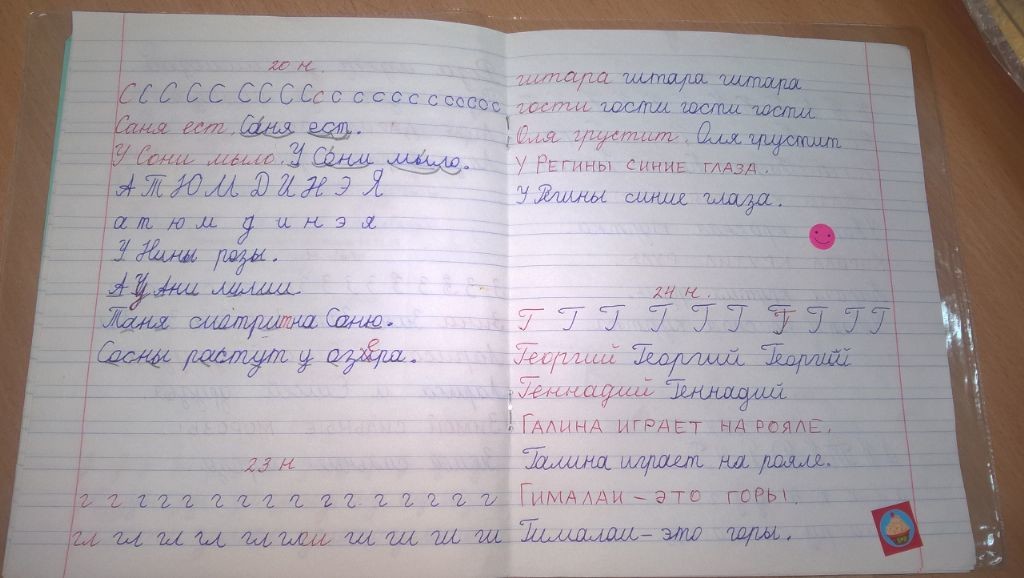 20 н.
С С С С С С С С С с с с с с с с с с с с
Саня ест. Саня ест.
У Сони мыло. У Сони мыло.
А Т Ю М Д И Н Э Я
а т ю м д и н э я
У Нины розы.
А у Ани лилии.
Таня смотрит на Соню.
Сосны растут у озера.
23 н
г г г г г г г г г г г г г г г г
гл гл гл гл гл гли ги ги ги ги
гитара гитара гитара
гости гости гости гости
Оля грустит. Оля грустит
У РЕГИНЫ СИНИЕ ГЛАЗА.
У Регины синие глаза.
24 н.
Г Г Г Г Г Г Г Г Г Г
Георгий Георгий Георгий
Геннадий Геннадий
ГАЛИНА ИГРАЕТ НА РОЯЛЕ.
Галина играет на рояле.
ГИМАЛАИ – ЭТО ГОРЫ.
Гималаи – это горы.